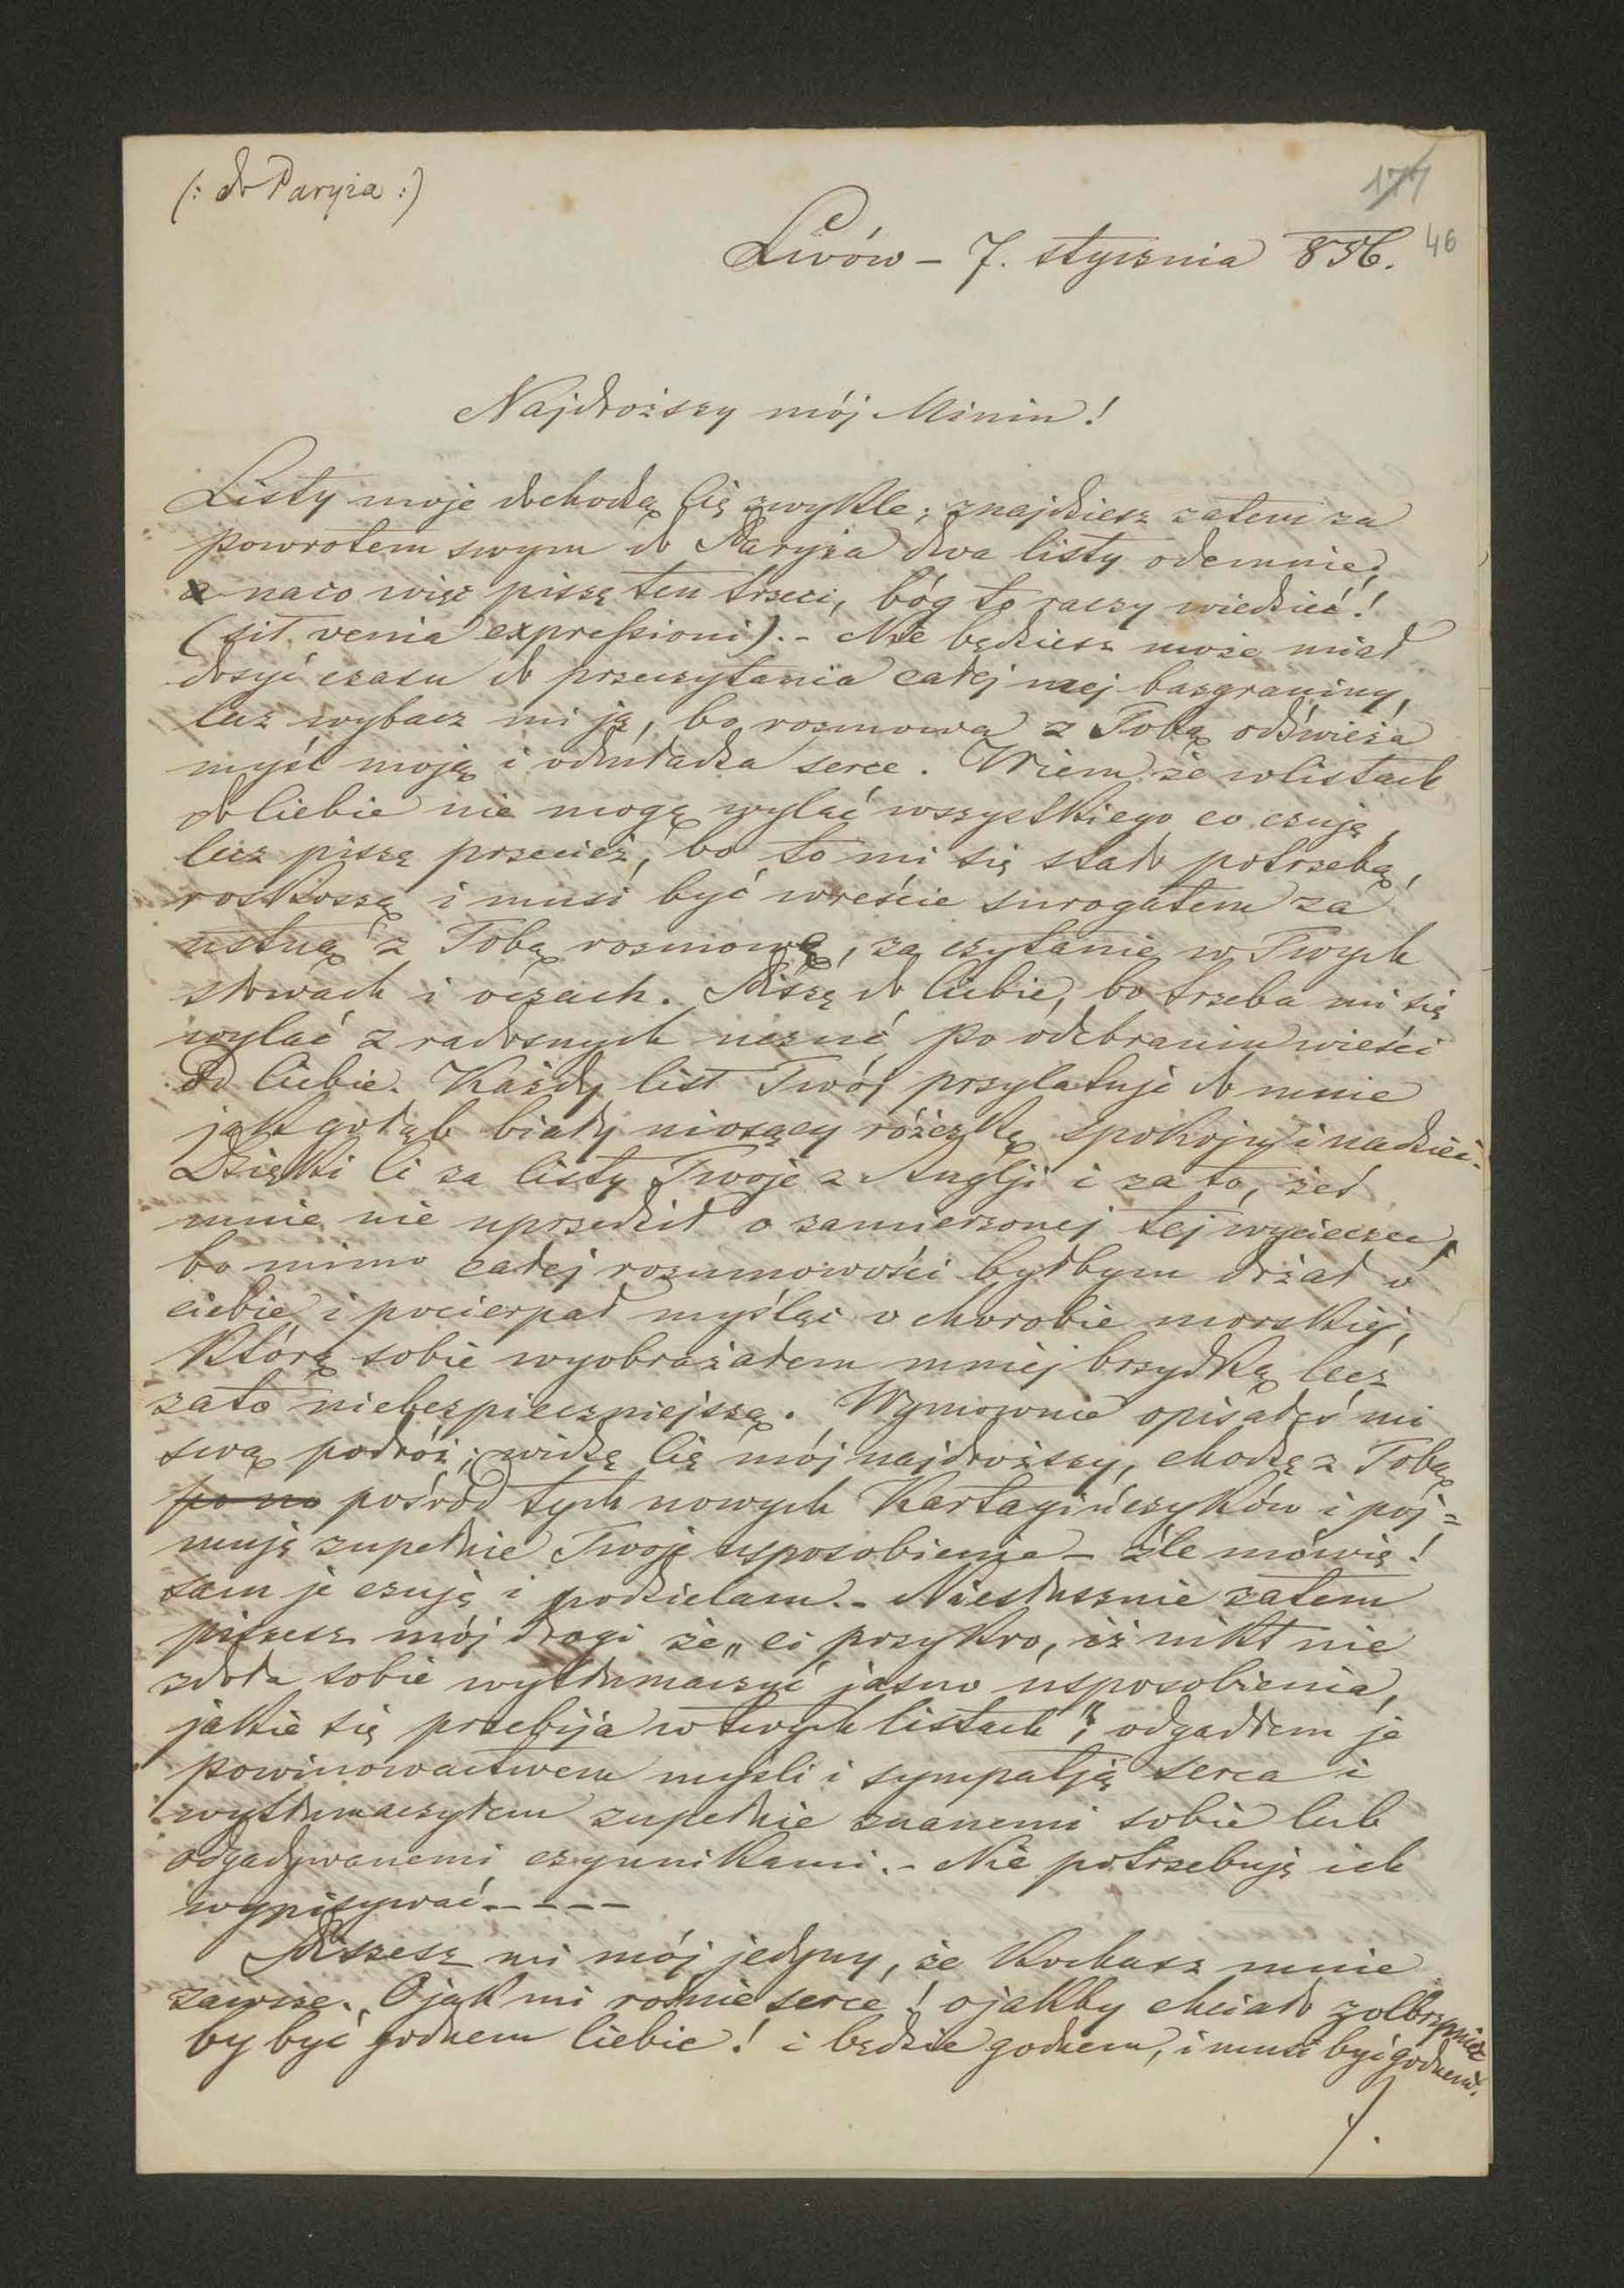 (: do Paryża :)
177
46
Lwów – 7. stycznia 856.
Najdroższy mój Minin!
Listy moje dochodzą Cię zwykle; znajdziesz zatem za
powrotem swym do Paryża dwa listy odemnie,
a naco więc piszę ten trzeci, bóg to raczy wiedzieć!
(sit venia expressioni). – Nie będziesz może miał
dosyć czasu do przeczytania całej mej bazgraniny,
lecz wybacz mi ją, bo rozmowa z Tobą odświeża
myśl moją i odmładza serce. Wiem że w listach
do Ciebie nie mogę wylać wszystkiego co czuję,
lecz piszę przecież, bo to mi się stało potrzebą,
roskoszą i musi być wreście surogatem za
ustną z Tobą rozmowę, za czytanie w Twych
słowach i oczach. Piszę do Ciebie, bo trzeba mi się
wylać z radosnych uczuć po odebraniu wieści
od Ciebie. Każdy list Twój przylatuje do mnie
jak gołąb biały niosący różczkę spokoju i nadziei.
Dzięki Ci za listy Twoje z Anglji i za to, żeś
mnie nie uprzedził o zamierzonej tej wycieczce,
bo mimo całej rozumowości byłbym drżał o
ciebie i pocierpał myśląc o chorobie morskiej,
którą sobie wyobrażałem mniej brzydką lecz
zato niebezpieczniejszą. Wymownie opisałeś mi
swą podróż; widzę Cię mój najdroższy, chodzę z Tobą
po no pośród tych nowych Kartagińczyków i poj=
muję zupełnie Twoje usposobienie – źle mówię!
sam je czuję i podzielam. – Niesłusznie zatem
piszesz mój drogi że „ci przykro, iż nikt nie
zdoła sobie wytłumaczyć jasno usposobienia,
jakie się przebija w twych listach"; odgadłem je
powinowactwem myśli i sympatją serca i
wytłumaczyłem zupełnie znanemi sobie lub
odgadywanemi czynnikami. – Nie potrzebuję ich
wypisywać – – – –
Piszesz mi mój jedyny, że kochasz mnie
zawsze. O jak mi rośnie serce! o jakby chciało zolbrzymieć
by być godnem Ciebie! i będzie godnem, i musi być godnem.
./.